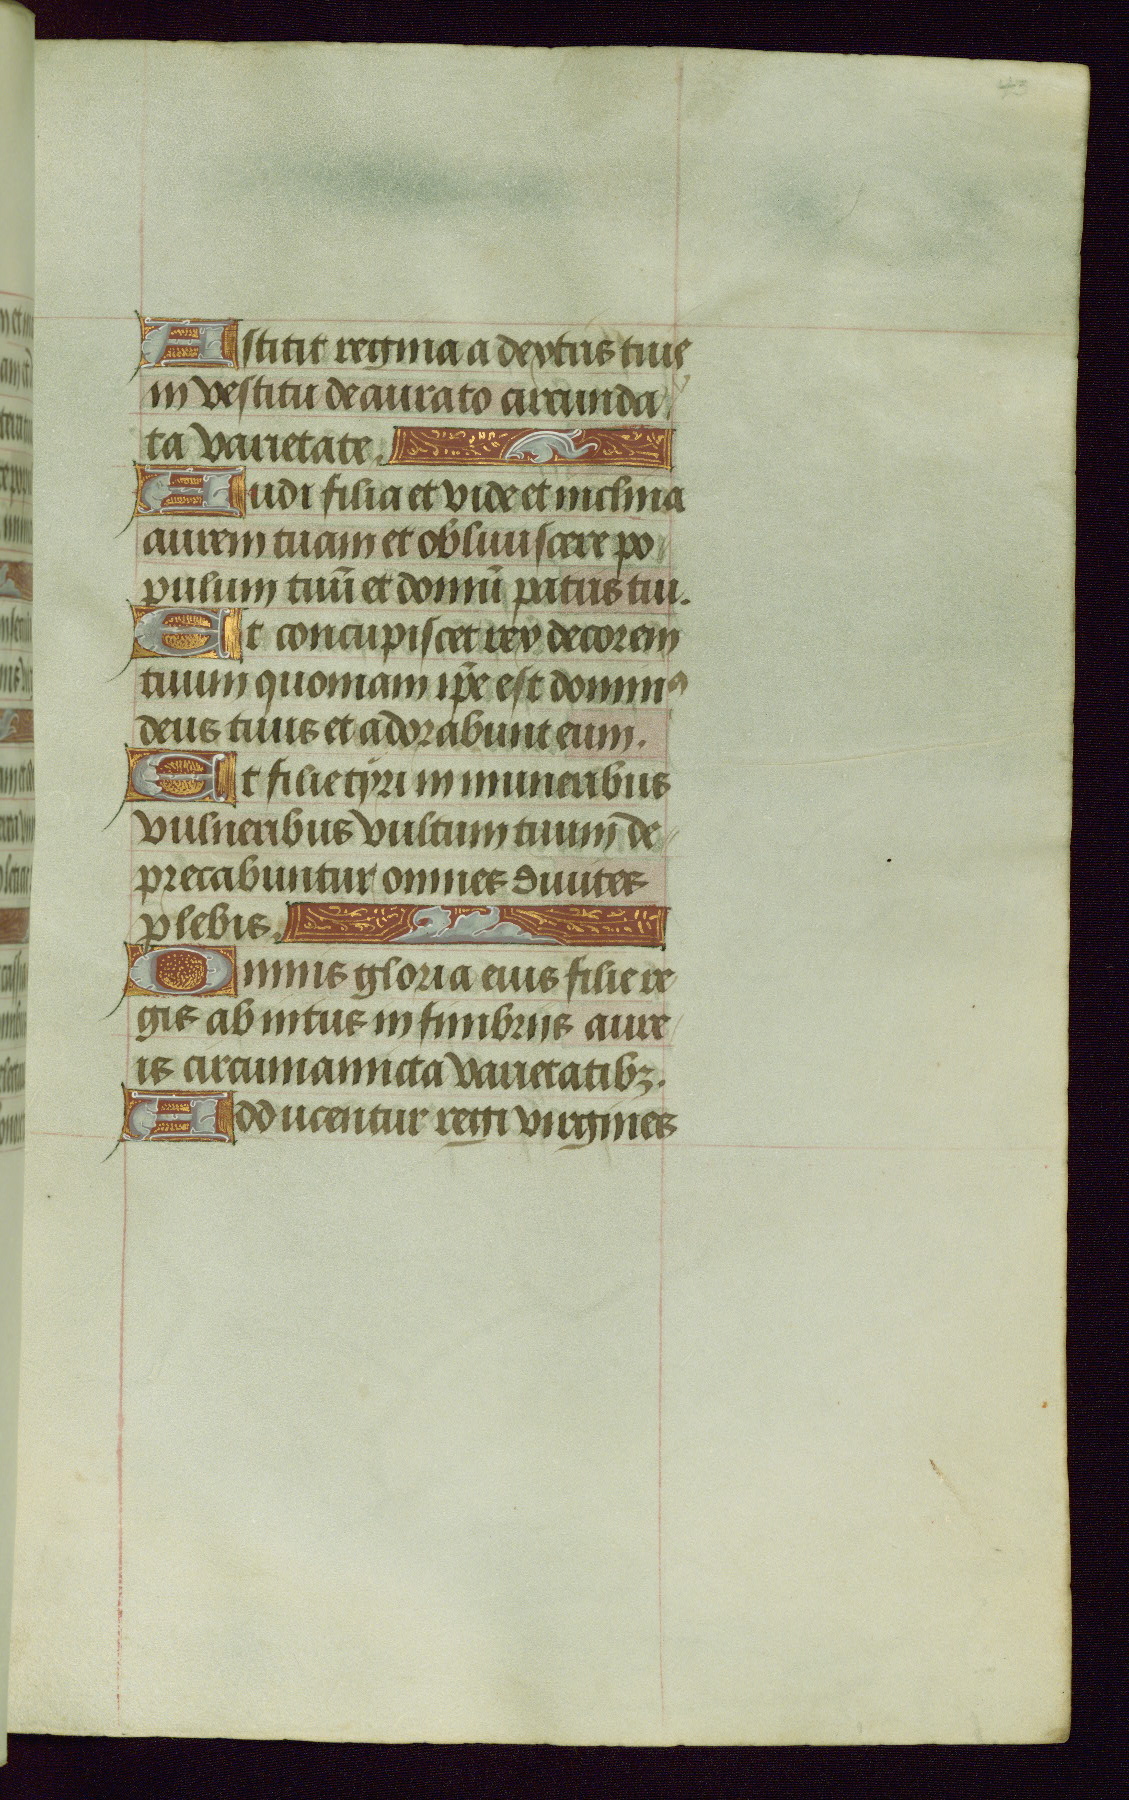 43
Astitit regina a dextris tuis
in vestitu deaurato circunda
ta varietate.
Audi filia et vide et inclina
aurem tuam et obliuiscere po
pulum tuū et domū patris tui.
Et concupiscet rex decorem
tuum quoniam ip̄e est dominꝰ
deus tuus et adorabunt eum.
Et filie tyri in muneribus
vulneribus vultum tuum de
precabuntur omnes diuites
plebis.
Omnis gloria eius filie re
gis ab intus in fimbrijs aure
is circumamicta varietatibꝫ.
Adducentur regi virgines